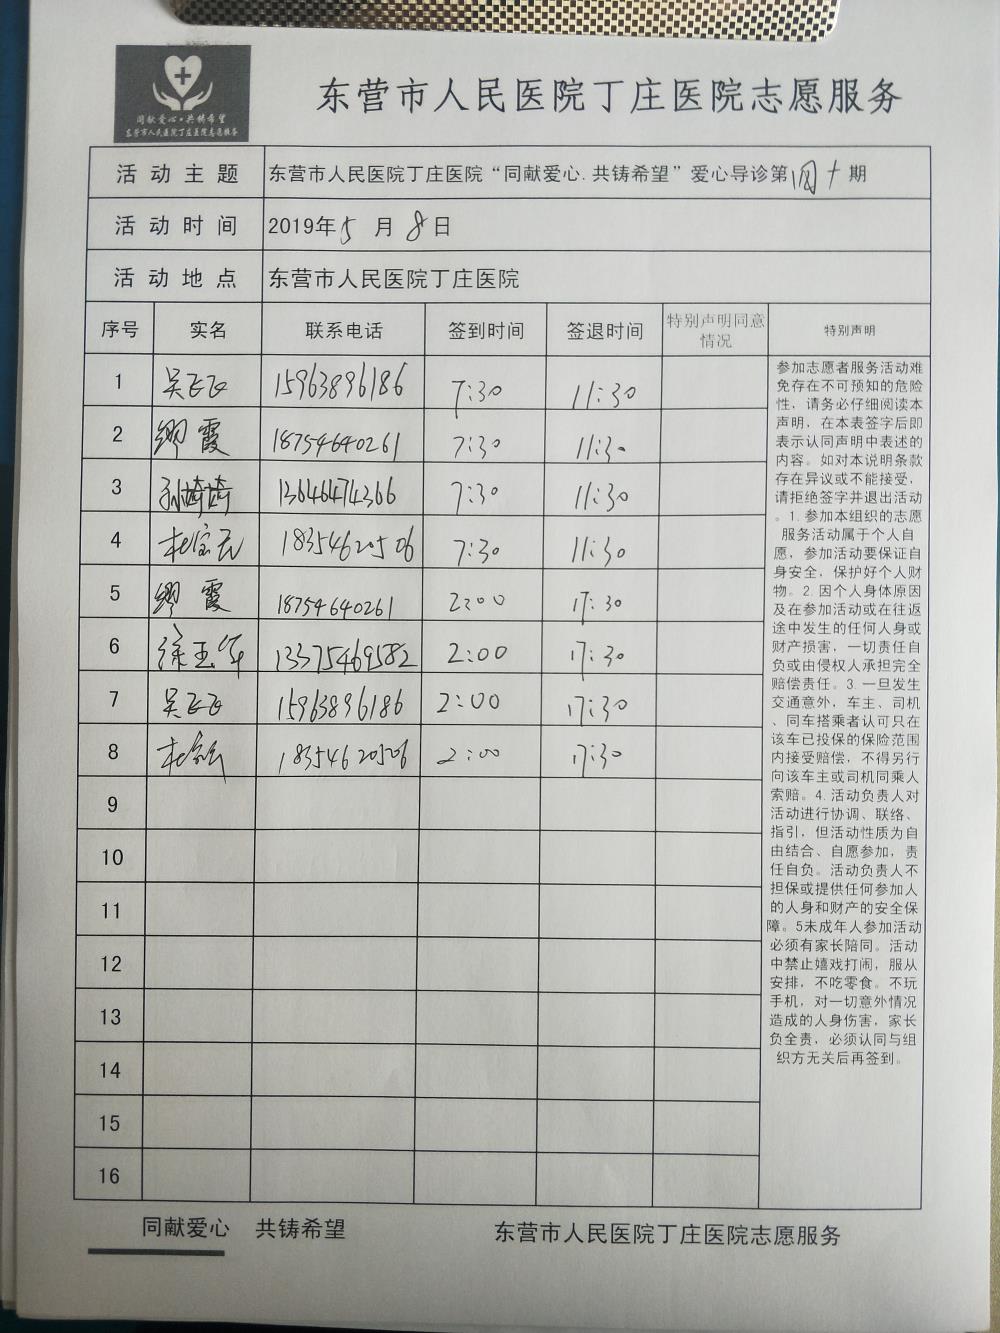 同献爱心·共铸希望
东营市人民医院丁庄医院志愿服务
东营市人民医院丁庄医院志愿服务
活动主题 东营市人民医院丁庄医院“同献爱心.共铸希望”爱心导诊第四十期
活动时间 2019年5月8日
活动地点 东营市人民医院丁庄医院
序号 实名 联系电话 签到时间 签退时间 特别声明同意情况 特别声明
1 吴飞飞 15963896186 7:30 11:30
2 缪霞 18754640261 7:30 11:30
3 孙埼埼 13646474366 7:30 11:30
4 杜宝云 18354620506 7:30 11:30
5 缪霞 18754640261 2:00 17:30
6 徐玉华 13375469582 2:00 17:30
7 吴飞飞 15963896186 2:00 17:30
8 杜宝云 18354620506 2:00 17:30
9
10
11
12
13
14
15
16
参加志愿者服务活动难
免存在不可预知的危险
性，请务必仔细阅读本
声明，在本表签字后即
表示认同声明中表述的
内容。如对本说明条款
存在异议或不能接受，
请拒绝签字并退出活动
。1.参加本组织的志愿
服务活动属于个人自
愿，参加活动要保证自
身安全，保护好个人财
物。2.因个人身体原因
及在参加活动或在往返
途中发生的任何人身或
财产损害，一切责任自
负或由侵权人承担完全
赔偿责任。3.一旦发生
交通意外，车主、司机
、同车搭乘者认可只在
该车已投保的保险范围
内接受赔偿，不得另行
向该车主或司机同乘人
索赔。4.活动负责人对
活动进行协调、联络、
指引，但活动性质为自
由结合、自愿参加，责
任自负。活动负责人不
担保或提供任何参加人
的人身和财产的安全保
障。5未成年人参加活动
必须有家长陪同。活动
中禁止嬉戏打闹，服从
安排，不吃零食。不玩
手机，对一切意外情况
造成的人身伤害，家长
负全责，必须认同与组
织方无关后再签到。
同献爱心 共铸希望 东营市人民医院丁庄医院志愿服务